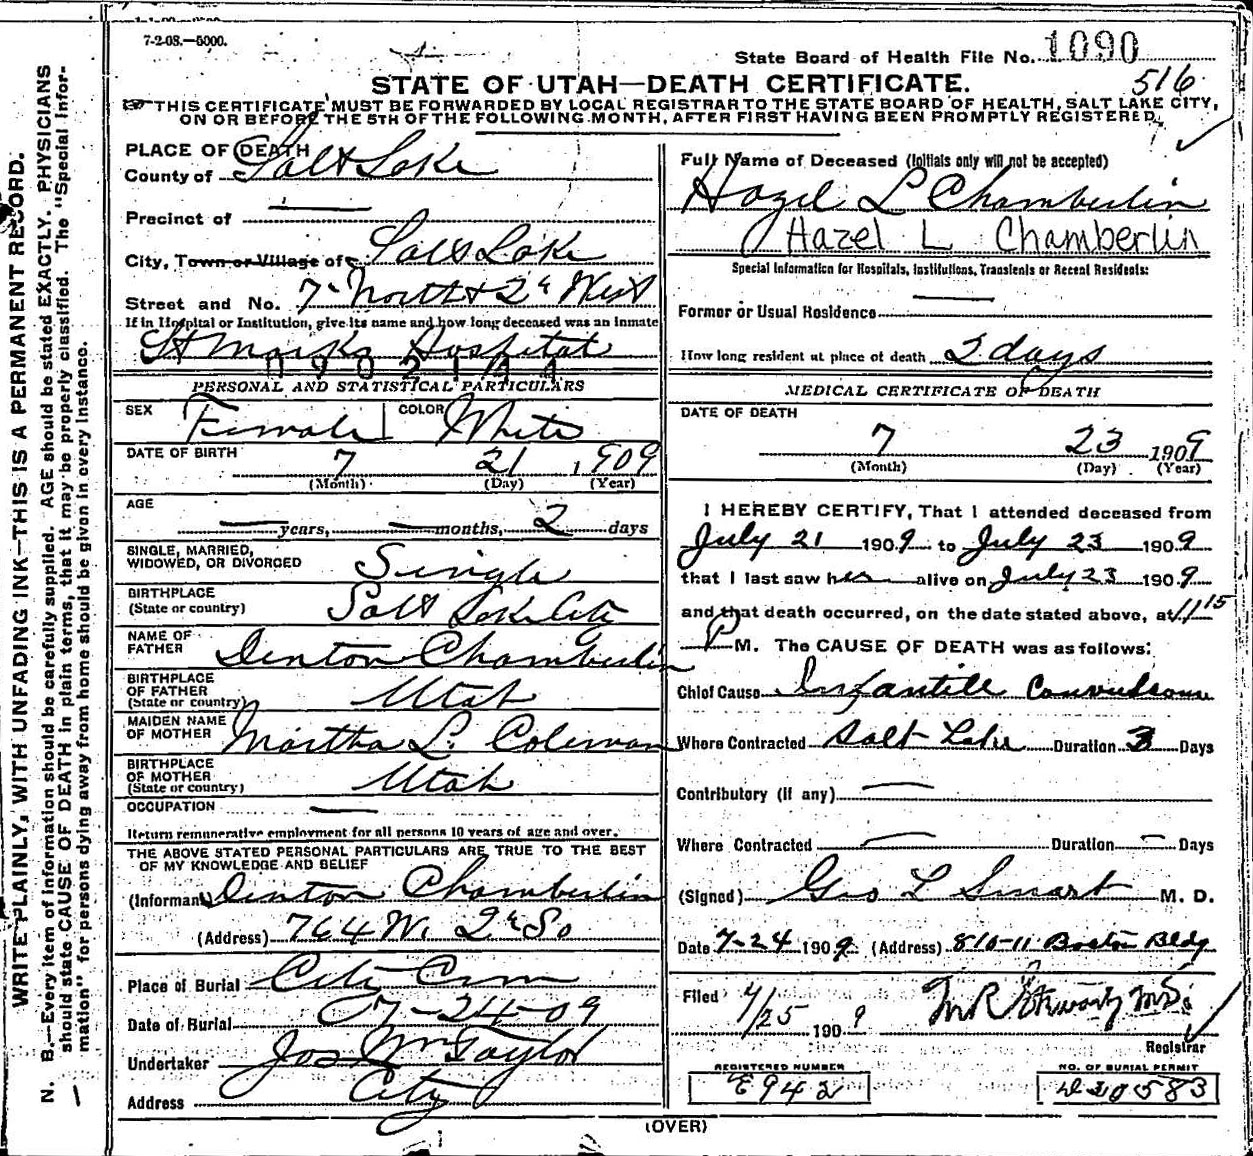 7-2-08.—5000.
State Board of Health File No. 1090
516
STATE OF UTAH—DEATH CERTIFICATE.
THIS CERTIFICATE MUST BE FORWARDED BY LOCAL REGISTRAR TO THE STATE BOARD OF HEALTH, SALT LAKE CITY,
ON OR BEFORE THE 5TH OF THE FOLLOWING MONTH, AFTER FIRST HAVING BEEN PROMPTLY REGISTERED.
WRITE PLAINLY, WITH UNFADING INK—THIS IS A PERMANENT RECORD.
N. B.—Every item of information should be carefully supplied. AGE should be stated EXACTLY. PHYSICIANS
should state CAUSE OF DEATH in plain terms, that it may be properly classified. The "Special Infor-
mation" for persons dying away from home should be given in every instance.
PLACE OF DEATH
County of Salt Lake
Precinct of —
City, Town or Village of Salt Lake
Street and No. 7th North & 2d West
If in Hospital or Institution, give its name and how long deceased was an inmate
St Marks Hospital
PERSONAL AND STATISTICAL PARTICULARS
SEX Female COLOR White
DATE OF BIRTH 7 21 1909
(Month) (Day) (Year)
AGE
— years, — months, 2 days
SINGLE, MARRIED,
WIDOWED, OR DIVORCED Single
BIRTHPLACE
(State or country) Salt Lake City
NAME OF
FATHER Denton Chamberlin
BIRTHPLACE
OF FATHER
(State or country) Utah
MAIDEN NAME
OF MOTHER Martha L. Coleman
BIRTHPLACE
OF MOTHER
(State or country) Utah
OCCUPATION —
Return remunerative employment for all persons 10 years of age and over.
THE ABOVE STATED PERSONAL PARTICULARS ARE TRUE TO THE BEST
OF MY KNOWLEDGE AND BELIEF
(Informant) Denton Chamberlin
(Address) 764 W. 2d So
Place of Burial City Cem
Date of Burial 7-24-09
Undertaker Jos Wm Taylor
Address City
Full Name of Deceased (Initials only will not be accepted)
Hazel L Chamberlin
Hazel L Chamberlin
Special Information for Hospitals, Institutions, Transients or Recent Residents:
Former or Usual Residence —
How long resident at place of death 2 days
MEDICAL CERTIFICATE OF DEATH
DATE OF DEATH
7 23 1909
(Month) (Day) (Year)
I HEREBY CERTIFY, That I attended deceased from
July 21 1909 to July 23 1909
that I last saw her alive on July 23 1909
and that death occurred, on the date stated above, at 11 15
P M. The CAUSE OF DEATH was as follows:
Chief Cause Infantile Convulsions
Where Contracted Salt Lake Duration 3 Days
Contributory (if any) —
Where Contracted — Duration — Days
(Signed) Geo L Smart M. D.
Date 7-24 1909 (Address) 810-11 Boston Bldg
Filed 7/25 1909
Registrar
REGISTERED NUMBER
E942
NO. OF BURIAL PERMIT
D20583
(OVER)